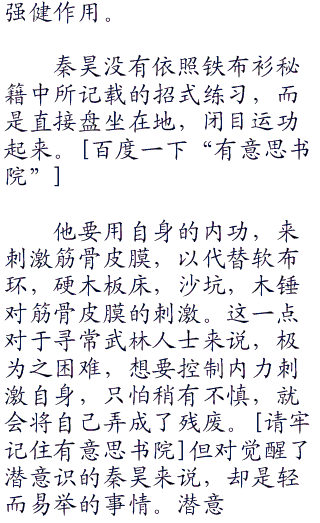 强健作用。
秦昊没有依照铁布衫秘
籍中所记载的招式练习，而
是直接盘坐在地，闭目运功
起来。[百度一下“有意思书
院”]
他要用自身的内功，来
刺激筋骨皮膜，以代替软布
环，硬木板床，沙坑，木锤
对筋骨皮膜的刺激。这一点
对于寻常武林人士来说，极
为之困难，想要控制内力刺
激自身，只怕稍有不慎，就
会将自己弄成了残废。[请牢
记住有意思书院]但对觉醒了
潜意识的秦昊来说，却是轻
而易举的事情。潜意